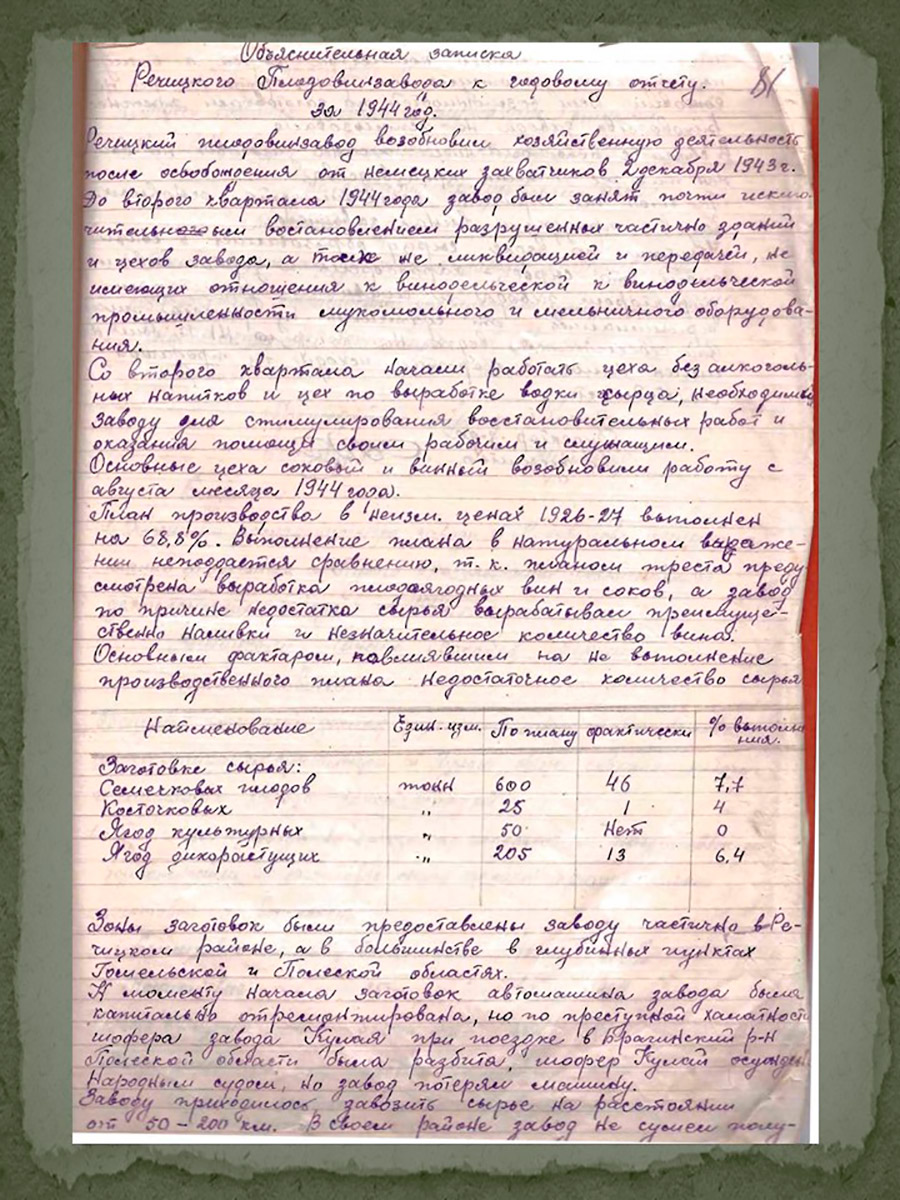 Объяснительная записка
Речицкого Плодовинзавода к годовому отчету.
за 1944 год.
81
Речицкий плодовинзавод возобновил хозяйственную деятельность
после освобождения от немецких захватчиков 2 декабря 1943 г.
До второго квартала 1944 года завод был занят почти исклю-
чительно востановлением разрушенных частично зданий
и цехов завода, а также ликвидацией и передачей, не
имеющих отношения к винодельческой к винодельческой
промышленности мукомольного и мельничного оборудова-
ния.
Со второго квартала начали работать цеха безалкоголь-
ных напитков и цех по выработке водки сырца, необходимый
заводу для стимулирования восстановительных работ и
оказания помощи своим рабочим и служащим.
Основные цеха соковый и винный возобновили работу с
августа месяца 1944 года.
План производства в неизм. ценах 1926-27 выполнен
на 68,8%. Выполнение плана в натуральном выраже-
нии неподдается сравнению, т.к. планом треста преду
смотрена выработка плодоягодных вин и соков, а завод
по причине недостатка сырья вырабатывал преимуще-
ственно наливки и незначительное количество вина.
Основным фактаром, повлиявшим на не выполнение
производственного плана недостаточное количество сырья
Наименование Един. изм. По плану фактически % выполне
ния.
Заготовке сырья:
Семечковых плодов тонн 600 46 7,7
Косточковых " 25 1 4
Ягод культурных " 50 Нет 0
Ягод дикорастущих " 205 13 6,4
Зоны заготовок были предоставлены заводу частично в Ре-
чицком районе, а в большинстве в глубинных пунктах
Гомельской и Полеской областях.
К моменту начала заготовок автомашина завода была
капитально отремонтирована, но по преступной халатности
шофера завода Кулая при поездке в Брагинский р-н
Полеской области была разбита, шофер Кулай осужден
Народным судом, но завод потерял машину.
Заводу приходилось завозить сырье на расстоянии
от 50-200 км. В своем районе завод не сумел полу-